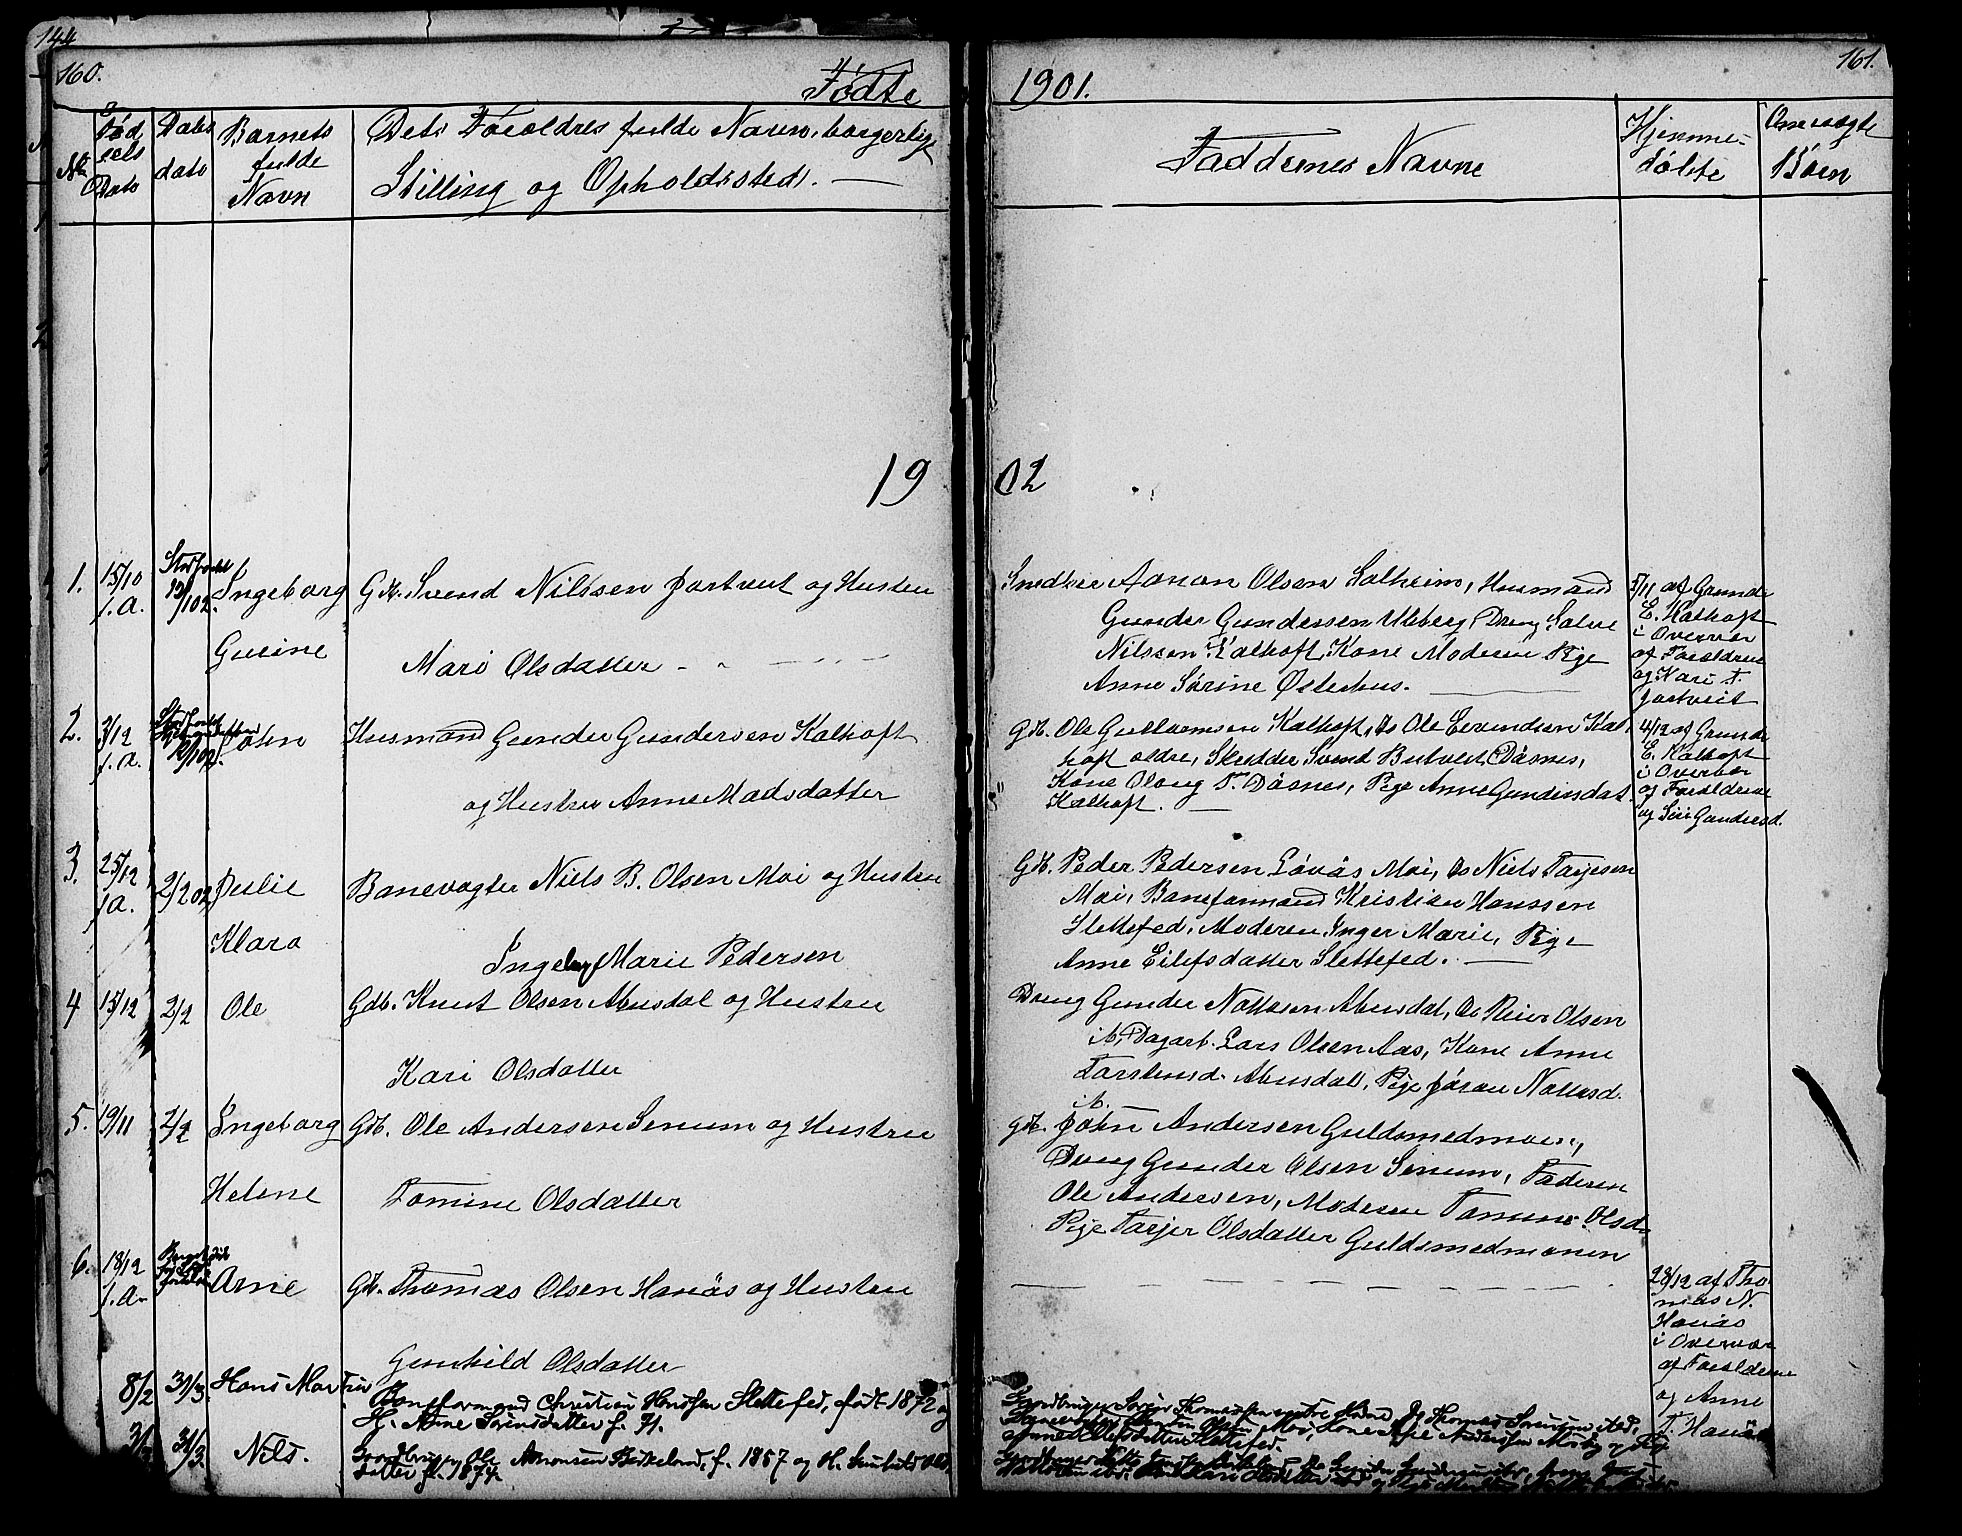 144
160.
Fødte
Nr.
Fød
sels
Dato
Daabs
dato
Barnets
fulde
Navn
Dets Forældres fulde Navn, borgerlige
Stilling og Opholdssted.
19
1.
15/10
f.A.
Ingeborg
Gurine
Gdb. Svend Nilssen Jortveit og Hustru
Mari Olsdatter
2.
3/12
f.A.
John
Husmand Gunder Gundersen Kalhoft
og Hustru Anne Madsdatter
3.
25/12
f.A.
2/2 02
Julie
Klara
Banevogter Niels B. Olsen Moi og Hustru
Ingeborg Marie Pedersen
4
15/12
2/2
Ole
Gdb. Knut Olsen Abusdal og Hustru
Kari Olsdatter
5.
19/11
2/2
Ingeborg
Helene
Gdb. Ole Andersen Senum og Hustru
Tomine Olsdatter
6.
18/12
f.A.
Arne
Gdb. Thomas Olsen Hanås og Hustru
Gunhild Olsdatter
8/2
31/3.
Hans Martin
Baneformand Christian Hansen Slettefed, født 1872 og
H. Anne Sørensdatter f. 71.
31/3
Nils.
Gaardbruger Ole Aanonsen Birkeland, f. 1867 og H. Gunhild Ols
datter f. 1874.
161.
1901.
Faddernes Navne
Hjemme-
døbte
Uægte
Børn
02
Snedker Aanon Olsen Solheim, Husmand
Gunder Gundersen Uleberg, Dreng Salve
Nilssen Kalhoft, Kone Moderen Pige
Anne Sørine Østerhus.
5/11 af Grunde
E. Kalhoft
i Overvær
af Forældrene
og Kari T.
Jortveit
Gdb. Ole Guttormsen Kalhoft, do Ole Eivindsen Kal-
hoft ældre, Skrædder Svend Butveit Dåsnes,
Kone Olaug T. Dåsnes, Pige Anne Gundersdat.
Kalhoft.
4/12 af Grunde
E. Kalhoft
i Overvær
af Forældrene
og Siri Gundersd.
Gdb. Peder Pedersen Løvås Moi, do Niels Tarjesen
Moi, Baneformand Kristian Hanssen
Slettefed, Moderen Inger Marie, Pige
Anne Eilefsdatter Slettefed.
Dreng Gunder Nottosen Abusdal, do Reier Olsen
ib, Dagarb. Lars Olsen Aas, Kone Anne
Torsteinsd. Abusdal, Pige Jøran Nottosd.
ib.
Gdb. John Andersen Guldsmedmoen,
Dreng Gunder Olsen Senum, Faderen
Ole Andersen, Moderen Tomine Olsd.
Pige Tarjer Olsdatter Guldsmedmoen
23/12 af Tho-
mas N.
Hanås
i Overvær
af Forældrene
og Anne
T. Hanås